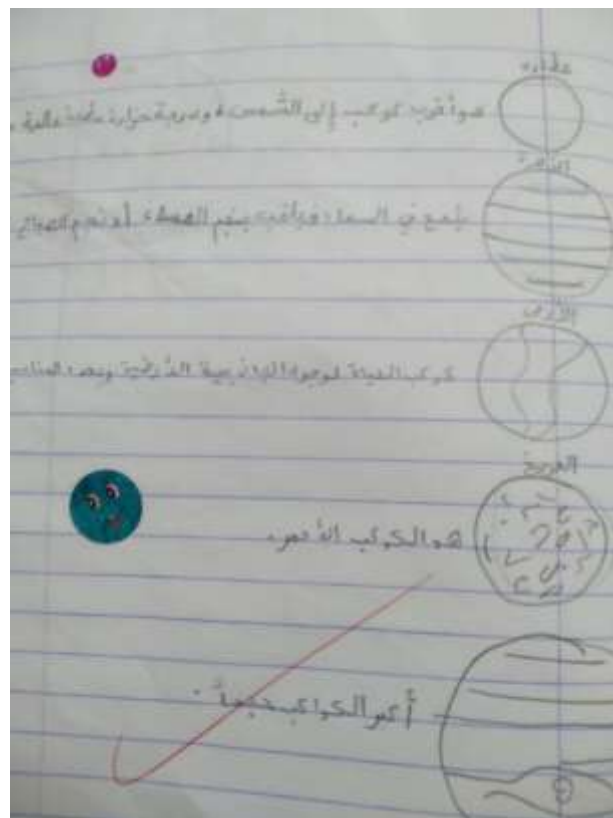 عطارد
هو أقرب كوكب إلى الشمس، ودرجة حرارته عالية
الزهرة
يلمع في السماء ويلقب بنجم المساء أو نجم الصباح
الأرض
كوكب الحياة لوجود الجاذبية الأرضية وبعده المناسب
المريخ
هو الكوكب الأحمر.
أكبر الكواكب حجماً.